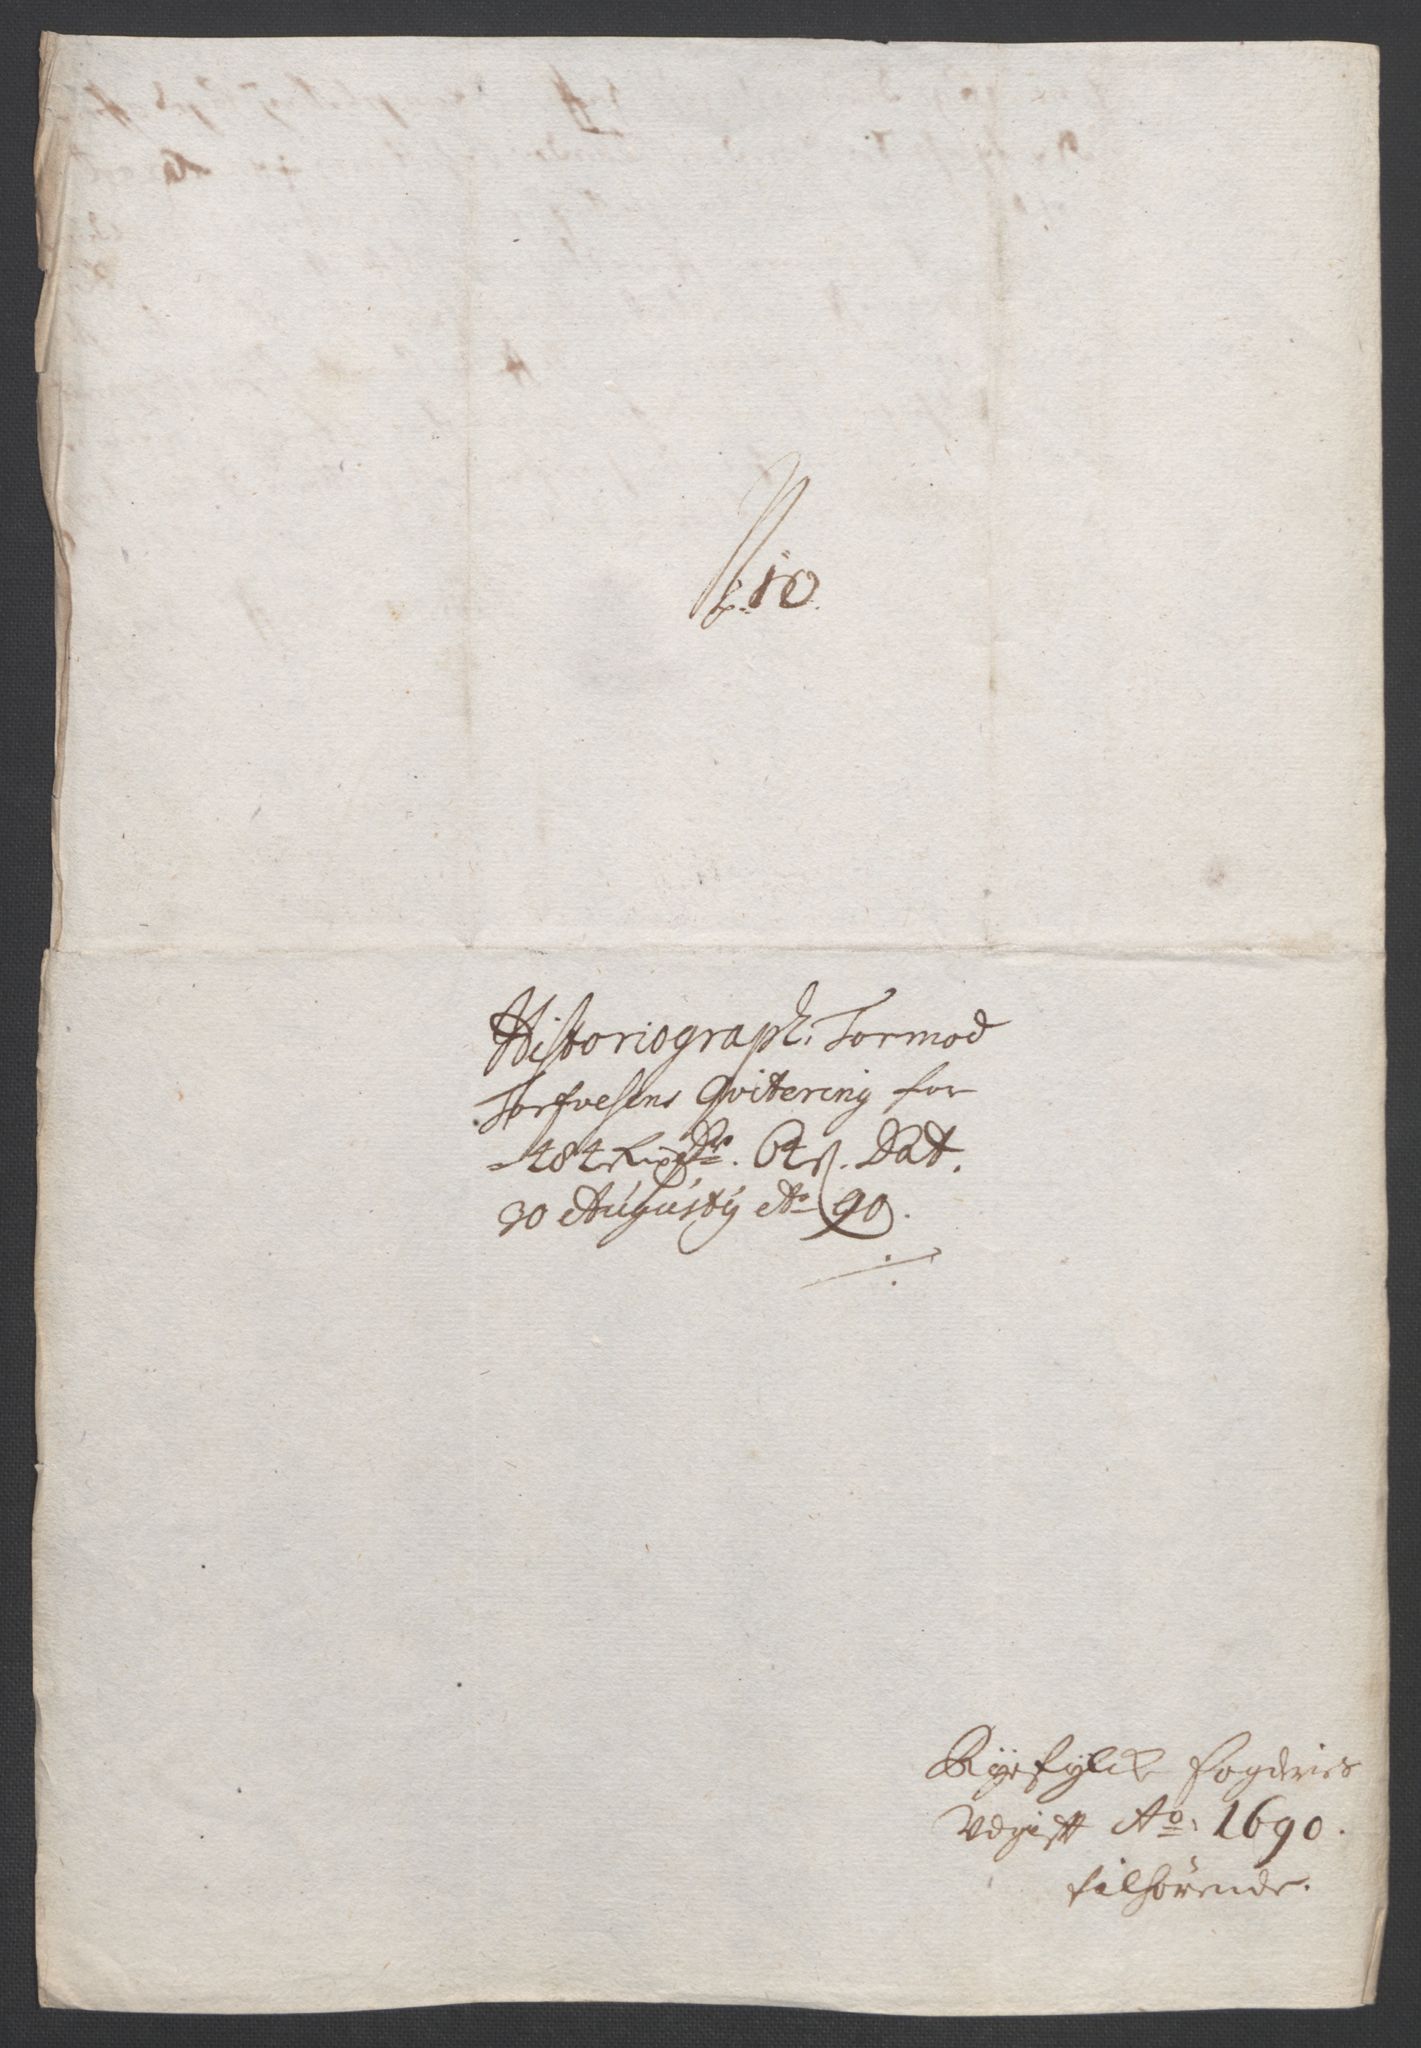 N: 10.
Historiograph: Tormod
Torfvesens Qvitering for
484 Rixdr. 64 ß. Dat.
30 Augusty Ao 90.
Ryefylcke fogderies
Udgifft Ao: 1690.
tilhørende.